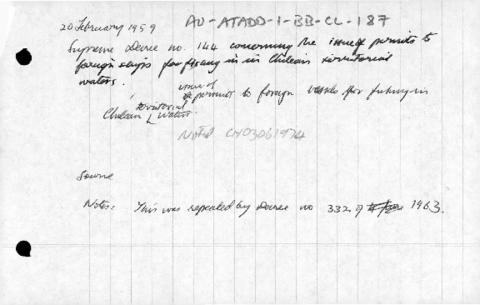 20 February 1959 AU-ATADD-1-BB-CL-187
Supreme Decree no. 144 concerning the issue of permits to
foreign ships for fishing in in Chilean territorial
waters.
issue of
permits to foreign vessels for fishing in
territorial
Chilean waters
Noted CH03061974
Source
Notes: This was repealed by Decree no 332 of 1963.